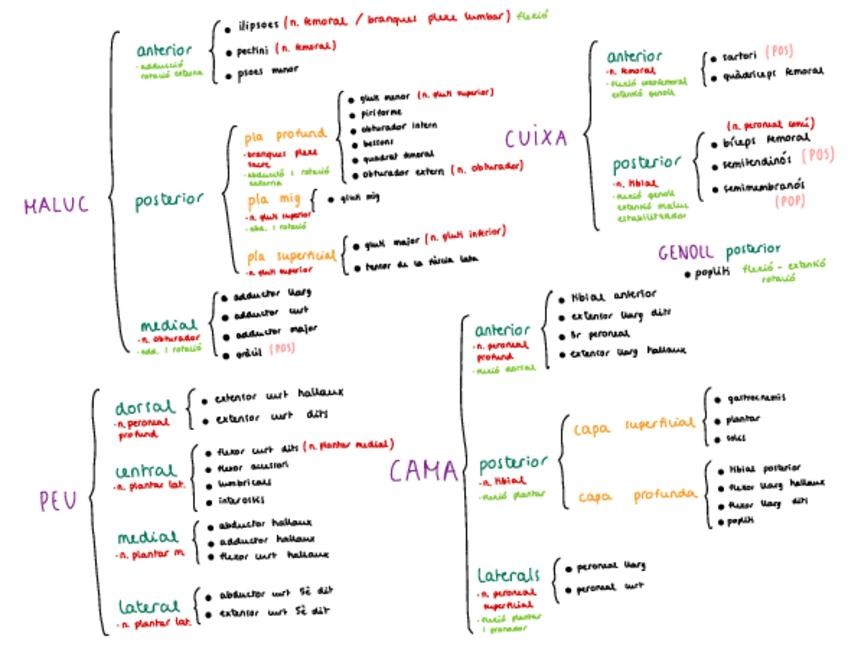 MALUC
anterior
- adducció
rotació externa
• ilipsoes (n. femoral / branques plexe lumbar) flexió
• pectini (n. femoral)
• psoes menor
posterior
pla profund
- branques plexe
sacre
- abducció i rotació
externa
• gluti menor (n. gluti superior)
• piriforme
• obturador intern
• bessons
• quadrat femoral
• obturador extern (n. obturador)
pla mig
- n. gluti superior
- abd. i rotació
• gluti mig
pla superficial
- n. gluti superior
• gluti major (n. gluti inferior)
• tensor de la fàscia lata
medial
- n. obturador
- add. i rotació
• adductor llarg
• adductor curt
• adductor major
• gràcil (POS)
CUIXA
anterior
- n. femoral
- flexió coxofemoral
extensió genoll
• sartori (POS)
• quàdriceps femoral
posterior
- n. tibial
- flexió genoll
extensió maluc
estabilitzador
(n. peroneal comú)
• bíceps femoral
• semitendinós (POS)
• semimembranós
(POP)
GENOLL posterior
• popliti flexió - extensió
rotació
PEU
dorsal
- n. peroneal
profund
• extensor curt hallaux
• extensor curt dits
central
- n. plantar lat.
• flexor curt dits (n. plantar medial)
• flexor accessori
• lumbricals
• interossis
medial
- n. plantar m
• abductor hallaux
• adductor hallaux
• flexor curt hallaux
lateral
- n. plantar lat.
• abductor curt 5è dit
• extensor curt 5è dit
CAMA
anterior
- n. peroneal
profund
- flexió dorsal
• tibial anterior
• extensor llarg dits
• 3r peroneal
• extensor llarg hallaux
posterior
- n. tibial
- flexió plantar
capa superficial
• gastrocnemis
• plantar
• solis
capa profunda
• tibial posterior
• flexor llarg hallaux
• flexor llarg dits
• popliti
laterals
- n. peroneal
superficial
- flexió plantar
i pronador
• peroneal llarg
• peroneal curt